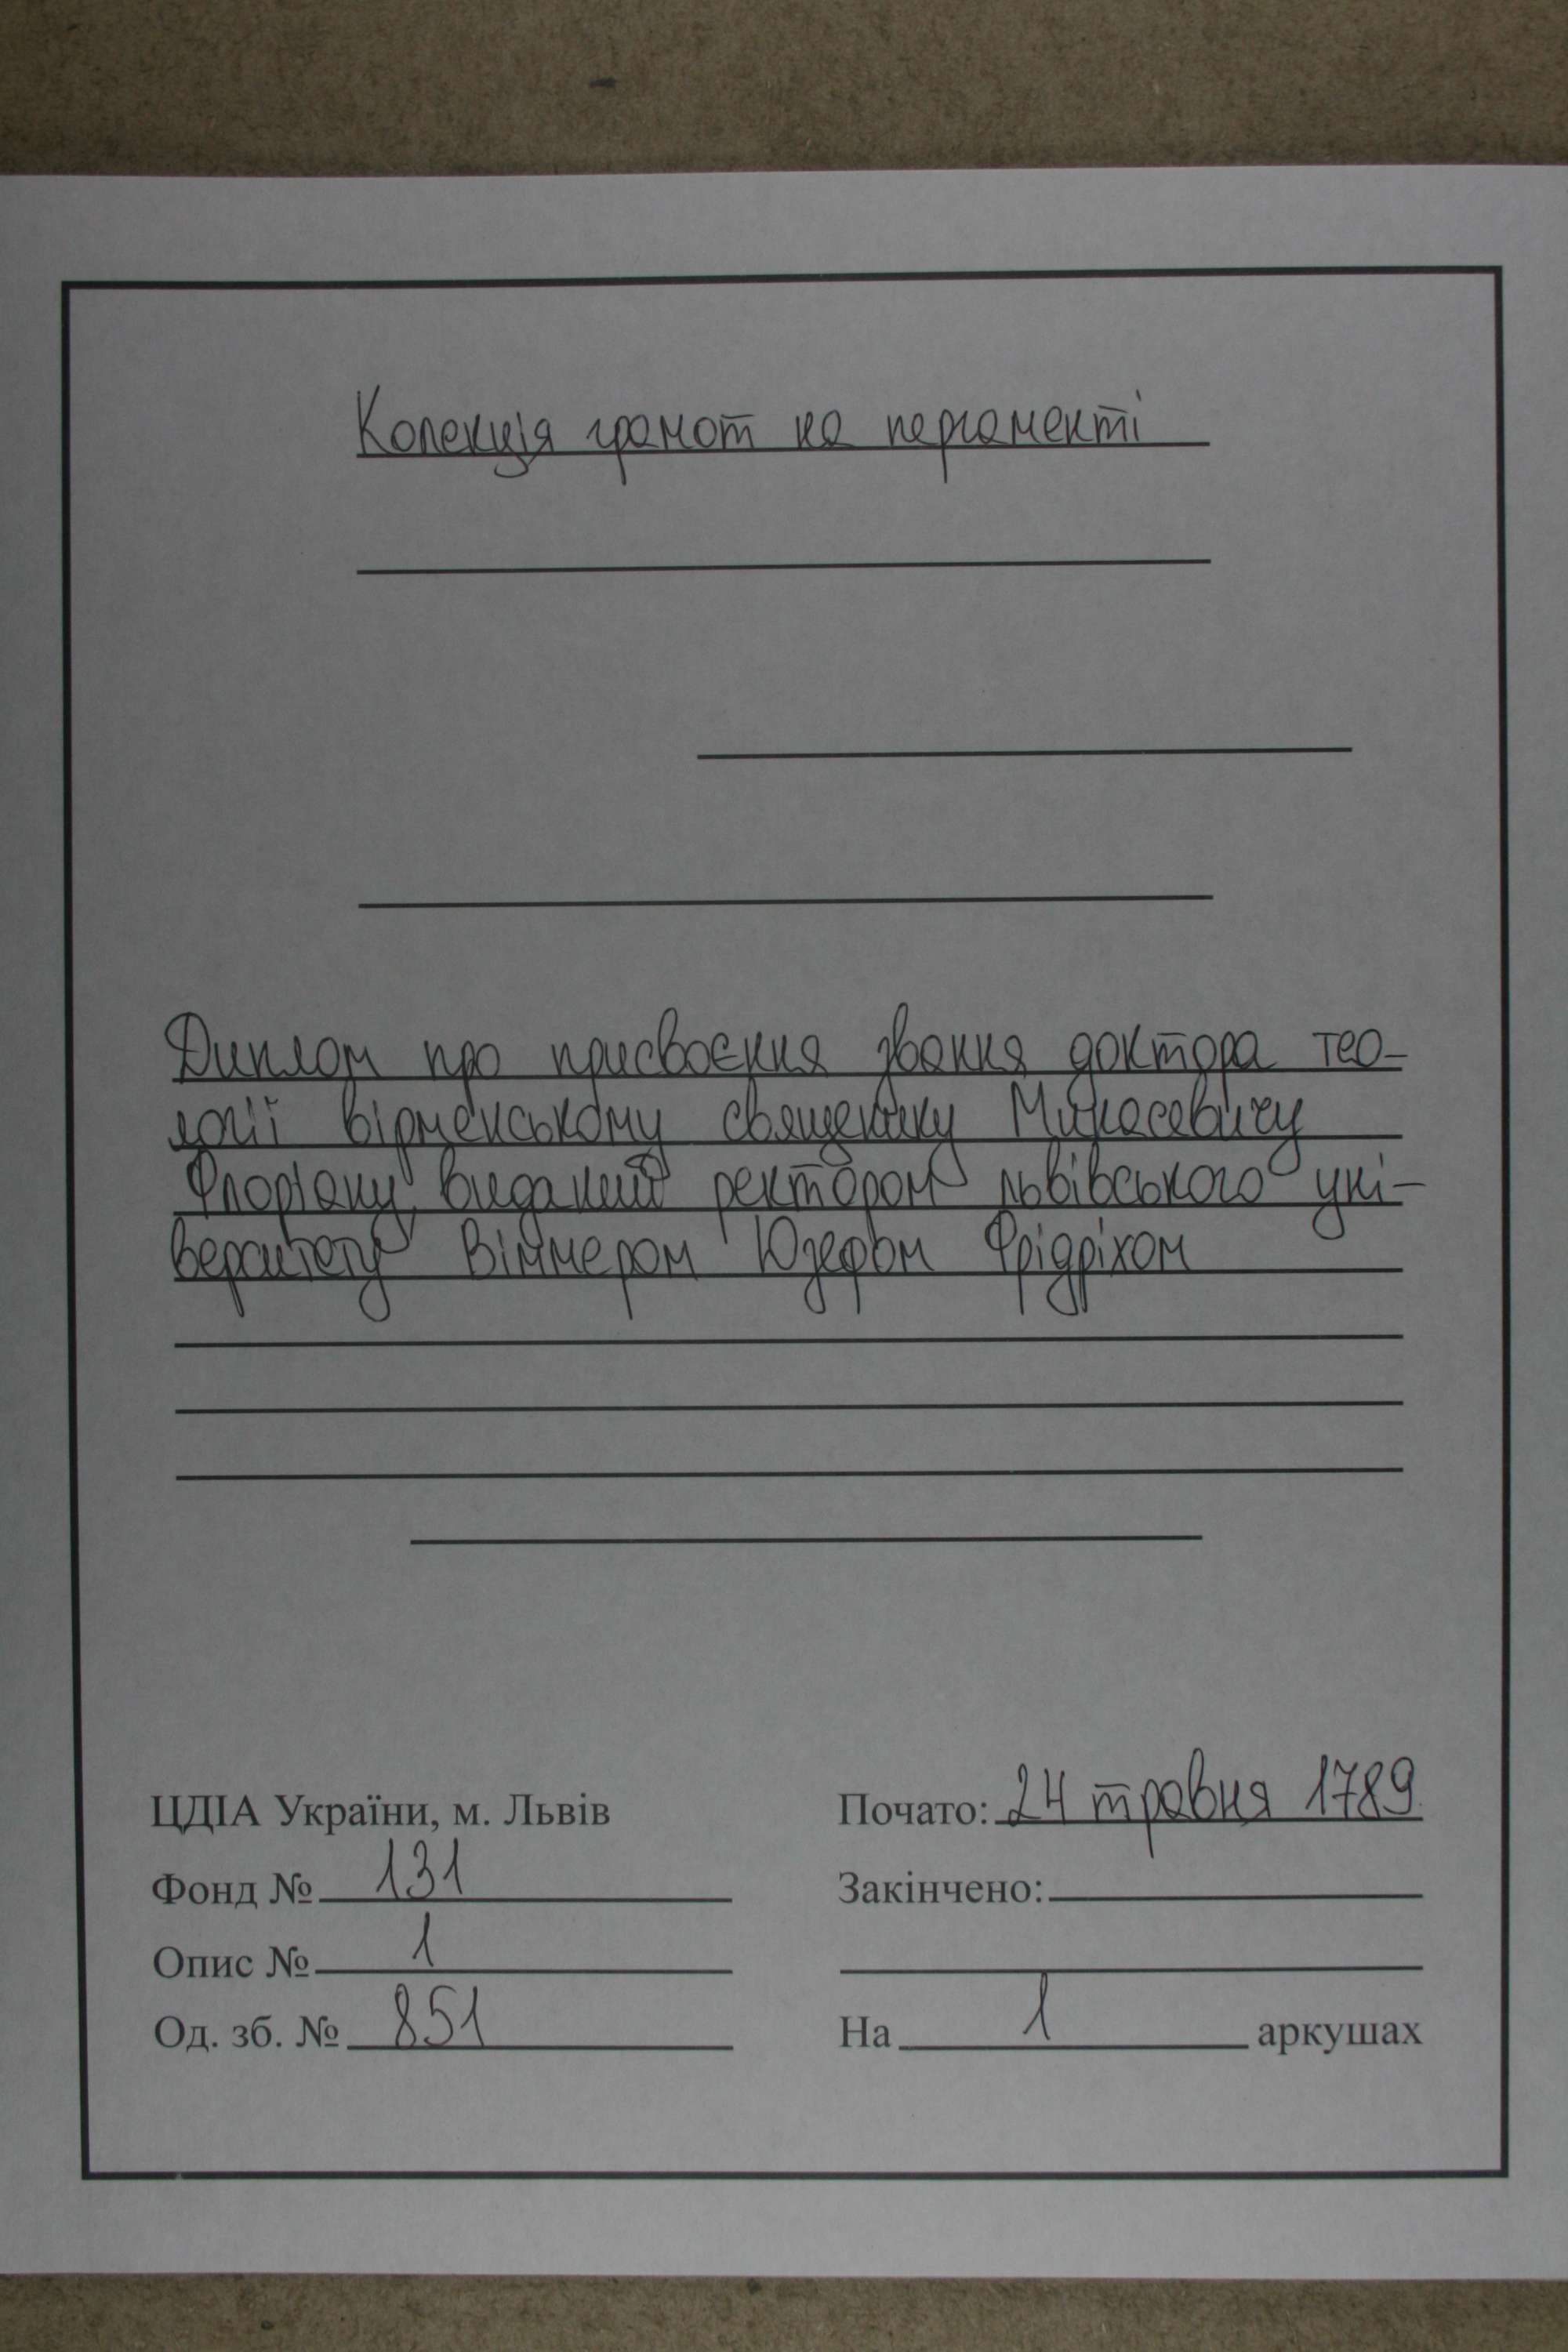 Колекція грамот на пергаменті
Диплом про присвоєння звання доктора тео-
логії вірменському священику Минасевичу
Флоріану, виданий ректором львівського уні-
верситету Віммером Юзефом Фрідріхом
ЦДІА України, м. Львів
Почато: 24 травня 1789
Фонд № 131
Закінчено:
Опис № 1
Од. зб. № 851
На 1 аркушах